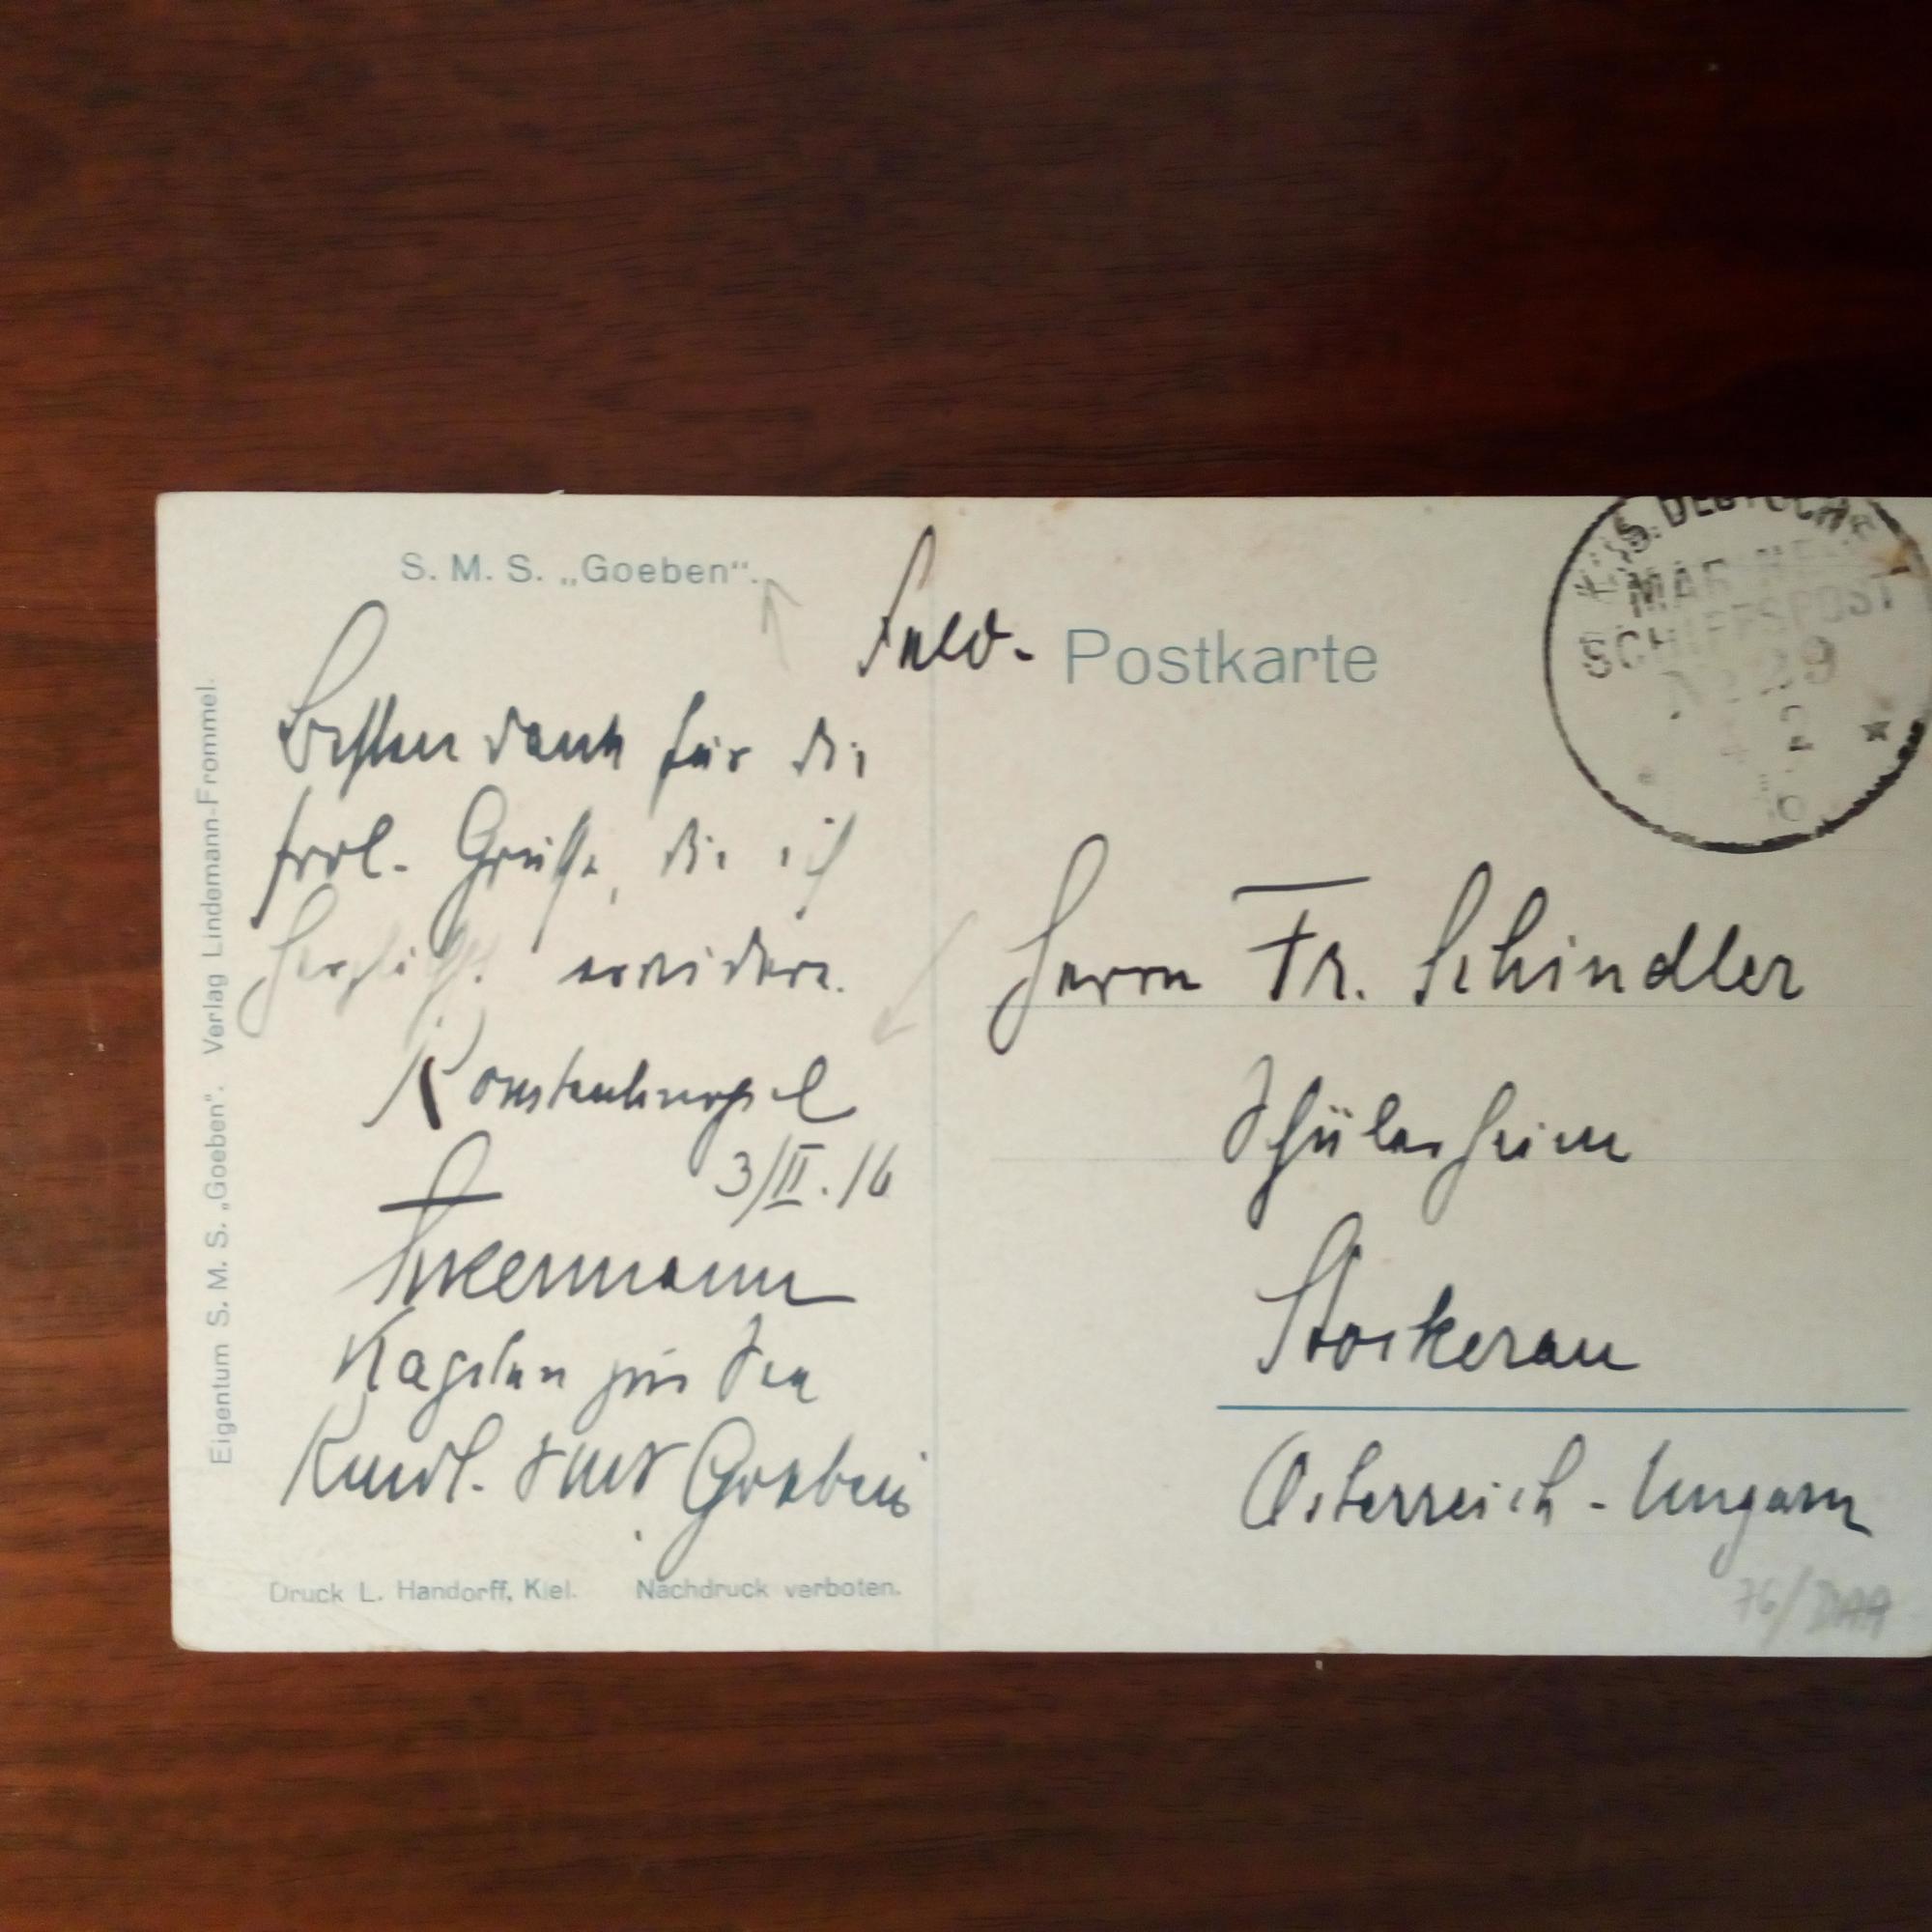 S. M. S. „Goeben“.
Feld- Postkarte
Besten Dank für die
frdl. Grüße, die ich
herzlichst erwidere.
Konstantinopel
3/II.16
Ackermann
Kapitän zur See
Kmdt. SMS Goeben
Eigentum S. M. S. „Goeben“. Verlag Lindemann-Frommel.
Druck L. Handorff, Kiel. Nachdruck verboten.
DEUTSCHE
MARINE-
SCHIFFSPOST
No 29
2
Herrn Fr. Schindler
Schülerheim
Stockerau
Österreich-Ungarn
76/